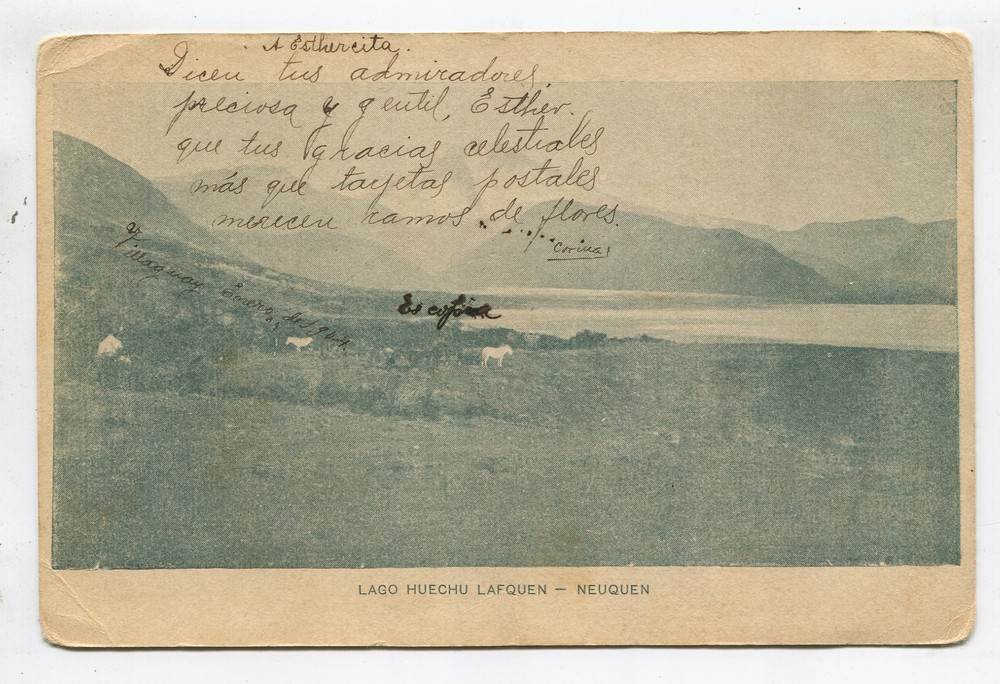 A Esthercita.
Dicen tus admiradores,
preciosa y gentil, Esther,
que tus gracias celestiales
más que tarjetas postales
merecen ramos de flores.
Corina
Villaguay Enero
Es copia
LAGO HUECHU LAFQUEN — NEUQUEN